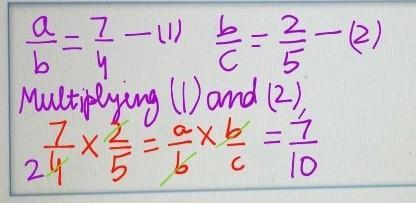 a/b = 7/4 — (1) b/c = 2/5 — (2)
Multiplying (1) and (2),
7/4 2 × 2/5 = a/b × b/c = 7/10